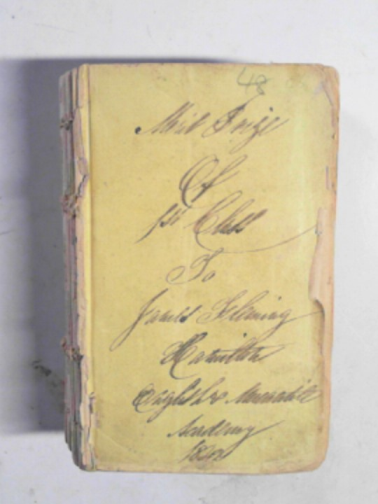 48
Of
1st Class
To
James Fleming
Hamilton
English & Mercantile
Academy